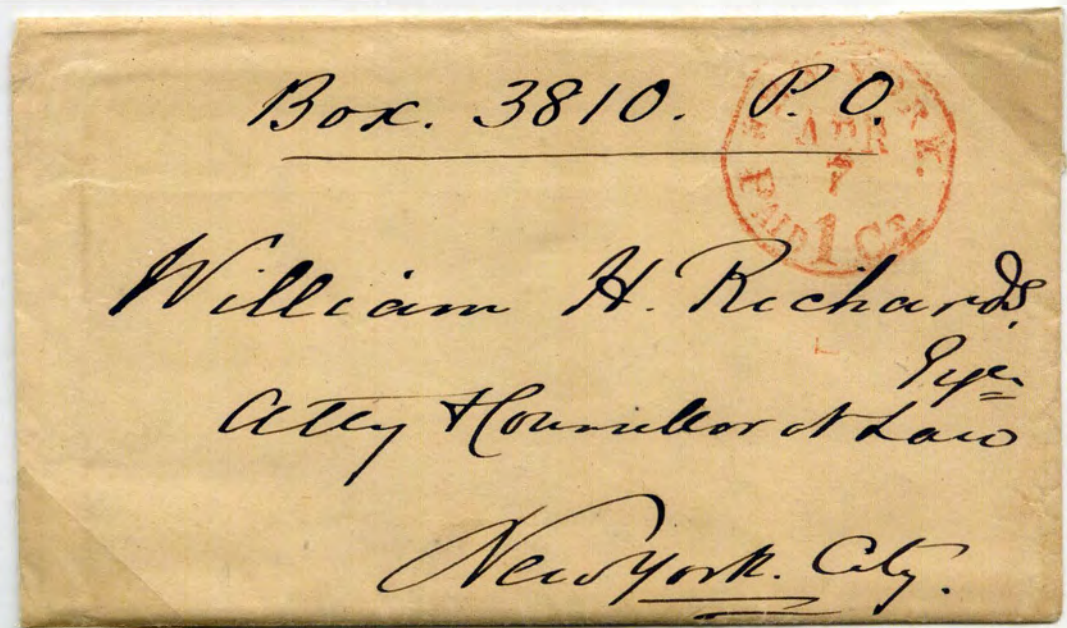 Box. 3810. P. O.
NEW YORK.
APR
7
PAID 1 Ct.
William H. Richards,
Esqr
Atty & Counsellor at Law
New York. City.